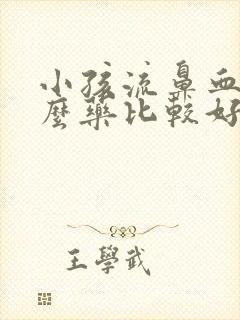 小孩流鼻血
麼藥比較好
王學武